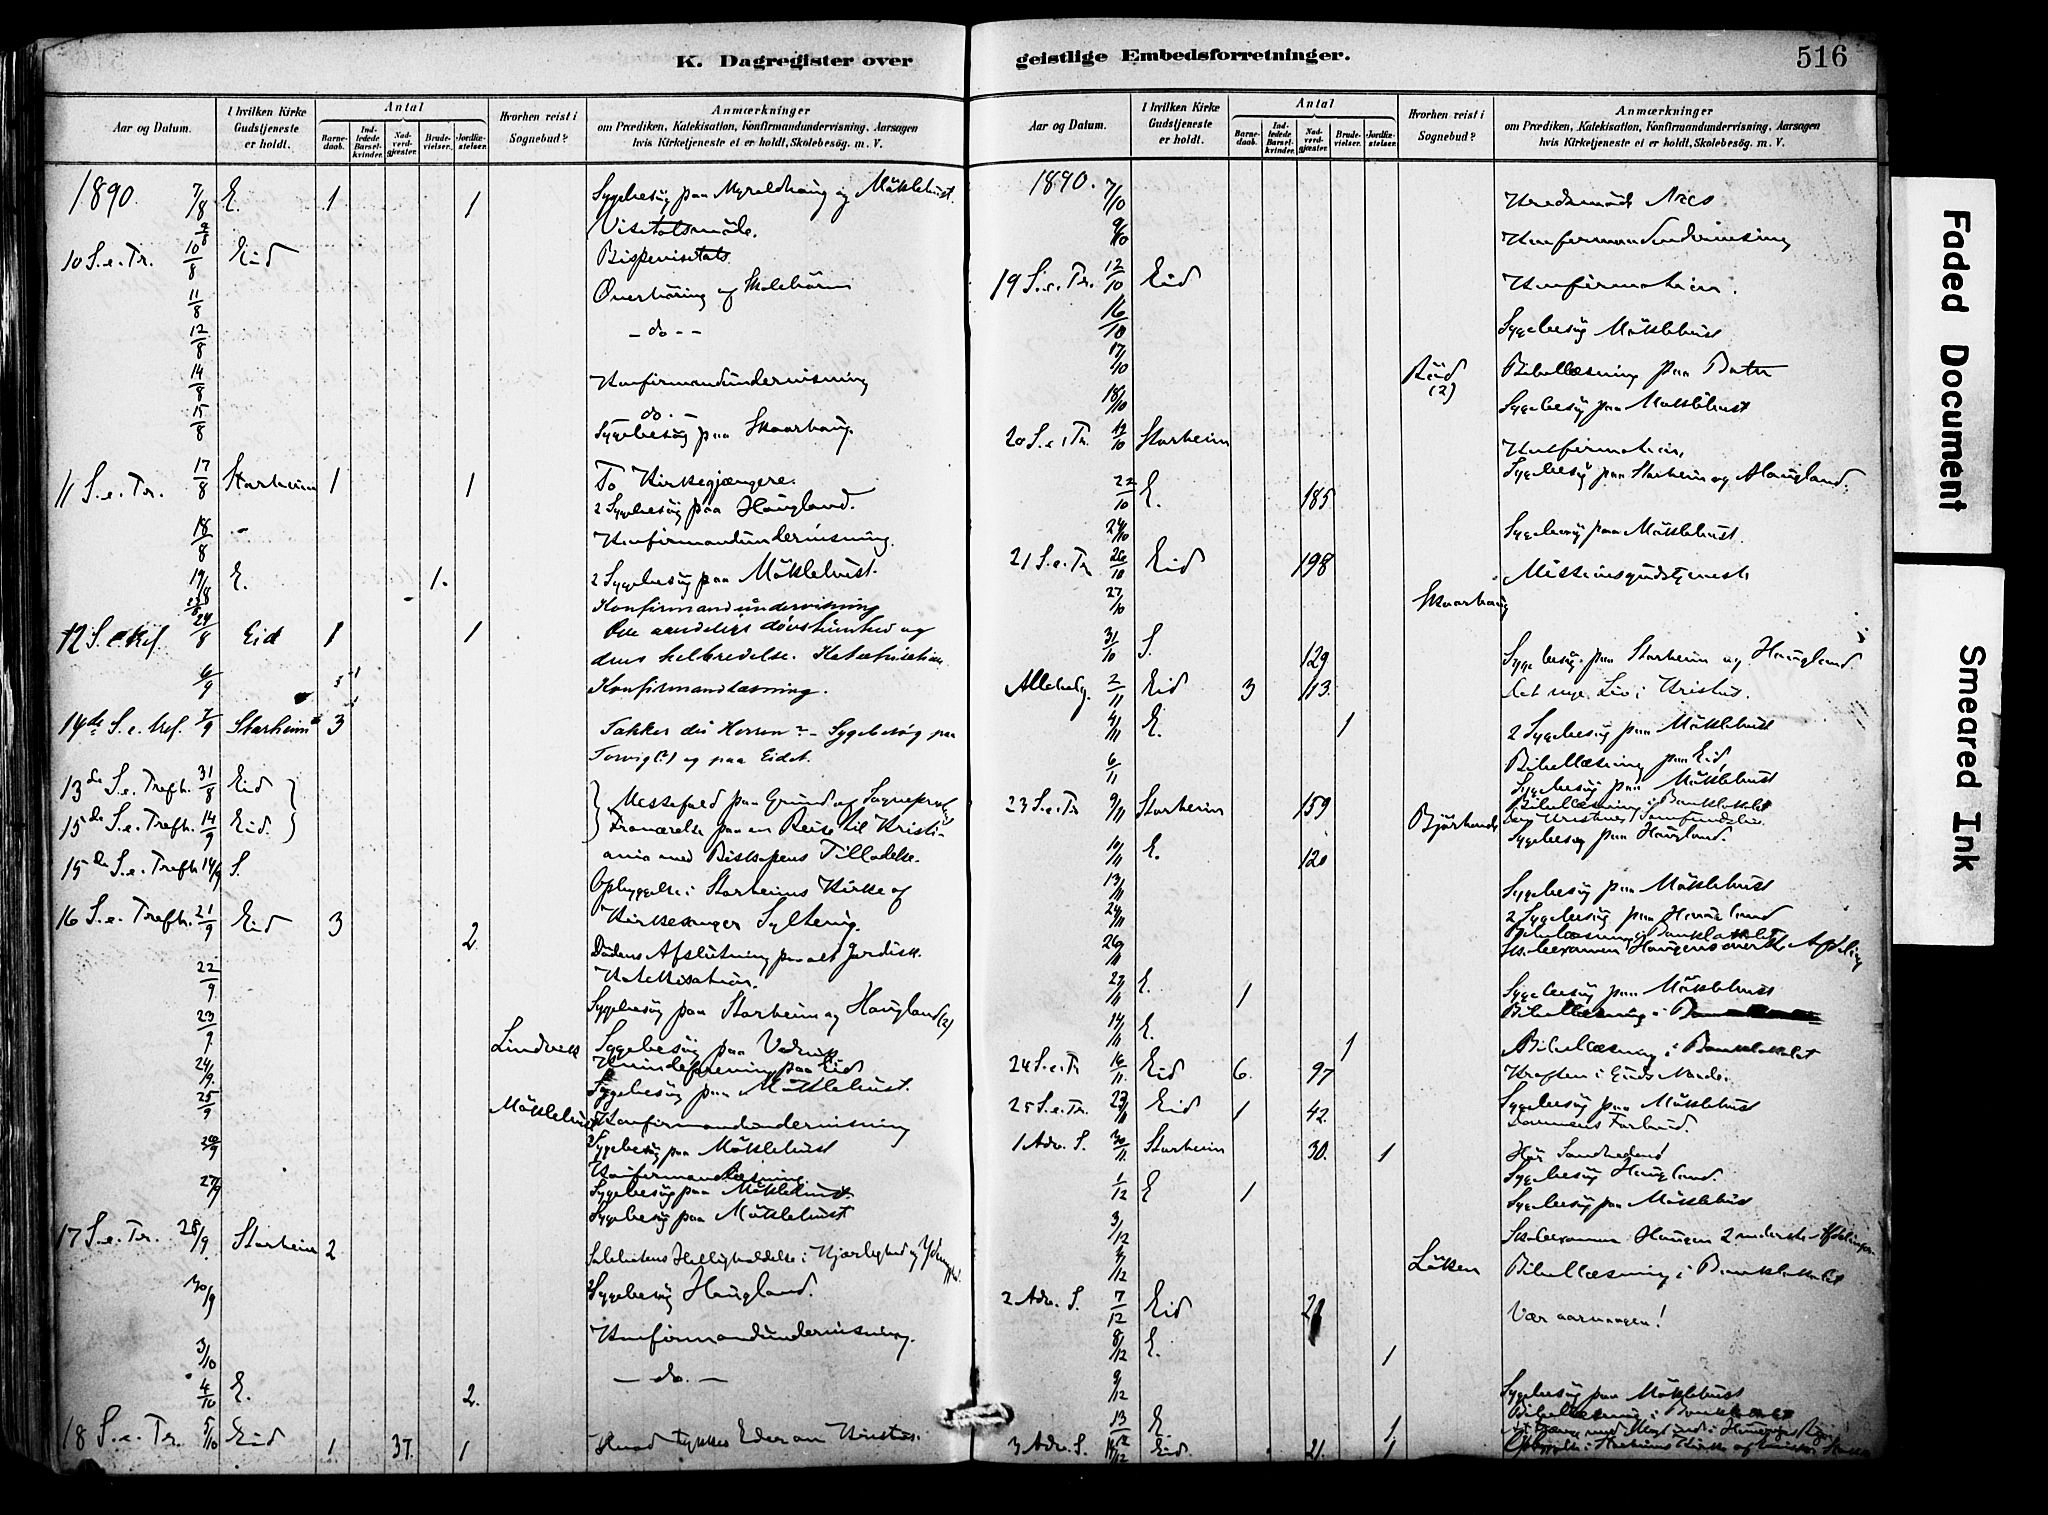 K. Dagregister over geistlige Embedsforretninger.
516
Aar og Datum.
I hvilken Kirke Gudstjeneste er holdt.
Antal
Barnedaab.
Indledede Barselkvinder.
Nadverdgjæster.
Brudevielser.
Jordfæstelser.
Hvorhen reist i Sognebud?
Anmærkninger
om Prædiken, Katekisation, Konfirmandundervisning, Aarsagen
hvis Kirketjeneste ei er holdt, Skolebesøg. m. V.
1890. 7/8 E. 1 1 Sygebesøg paa Myroldhaug og Mökkehust.
9/8 Visitatsmöde.
10 S. e. Tr. 10/8 Eid Bispevisitats.
11/8 Overhöring af Skolebörn
12/8 - do - -
14/8 Konfirmandundervisning
15/8 - do. -
Sygebesøg paa Skaarhaug.
11 S. e. Tr. 17/8 Starheim 1 1 To Kirkegjængere.
2 Sygebesøg paa Haugland.
18/8 - Konfirmandundervisning.
19/8 E. 1. 2 Sygebesøg paa Mökkehust.
23/8 Konfirmandundervisning
12 S. e. Tref. 24/8 Eid 1 1 Om aandelig døvstumhed og
dens helbredelse. Katekisation
6/9 Konfirmandlæsning.
14de S. e. Tref. 7/9 Starheim 3 Takker din Herren - Sygebesøg paa
Torvig(?) og paa Eidet.
13de S. e. Trefh. 31/8 Eid } Messefald paa Grund af Sognepræstens
15de S. e. Trefh. 14/9 Eid. } Fraværelse paa en Reise til Kristi-
ania med Biskopens Tilladelse.
15de S. e. Trefh 14/9 S. Opbyggelse i Starheims Kirke af
Kirkesanger Sylterig.
16 S. e. Trefh. 21/9 Eid 3 2 Dødens Afslutning paa alt Jordisk.
Katekisation.
22/9 Sygebesøg paa Starheim og Haugland (2)
23/9 Lindvik Sygebesøg paa
24/9 Kvindeforening paa Eid
Sygebesøg paa Mökkehust.
25/9 Mökkehust Konfirmandundervisning
26/9 Sygebesøg paa Mökkehust
Konfirmandlæsning.
27/9 Sygebesøg paa Mökkehust.
Sygebesøg paa Mökkehust
17 S. e. Tr. 28/9 Starheim 2 Sabbatens Helligholdelse i Kjærlighed og
30/9 Sygebesøg Haugland.
3/10 Konfirmandundervisning.
4/10 E. 2. - do. -
18 S. e. Tr. 5/10 Eid 1. 37. 1 Hvad tykkes Eder om Kristus.
Aar og Datum.
I hvilken Kirke Gudstjeneste er holdt.
Antal
Barnedaab.
Indledede Barselkvinder.
Nadverdgjæster.
Brudevielser.
Jordfæstelser.
Hvorhen reist i Sognebud?
Anmærkninger
om Prædiken, Katekisation, Konfirmandundervisning, Aarsagen
hvis Kirketjeneste ei er holdt, Skolebesøg. m. V.
1890. 7/10 Kredsmöde Naes
9/10 Konfirmandundervisning
19 S. e. Tr. 12/10 Eid Konfirmation.
16/10 Sygebesøg Mökkehust
17/10 Röd (2) Bibellæsning paa
18/10 Sygebesøg paa Mökkehust
20 S. e. Tr. 19/10 Starheim Konfirmation.
Sygebesøg paa Starheim og Haugland.
22/10 E. 185
24/10 Sygebesøg paa Mökkehust.
21 S. e. Tr 26/10 Eid 198 Missionsgudstjeneste
27/10 Skaarhaug
31/10 S. 129 Sygebesøg paa Starheim og Haugland
Allehelg. 2/11 Eid 3 113. Det nye Liv i Kristus.
4/11 E. 1 2 Sygebesøg paa Mökkehust
6/11 Bibellæsning paa Eid,
Sygebesøg paa Mökkehust
Bibellæsning i Banklokalet
23 S. e. Tr 9/11 Starheim 159 Den Kristnes Samfundsliv.
Sygebesøg paa Haugland.
10/11 E. 120
13/11 Sygebesøg paa Mökkehust
24/11 2 Sygebesøg paa Haugland
Bibellæsning i Banklokalet
26/11 Skoleexamen Haugens øverste Afdeling
27/11 E. 1 Sygebesøg paa Mökkehust
Bibellæsning i
14/11 E. 1 Bibellæsning i Banklokalet
24 S. e. Tr 16/11 Eid 6. 97 Kraften i Guds Naade.
25 S. e. Tr. 23/11 Eid 1 42. Sygebesøg paa Mökkehust
Dommens Forbud.
1 Adv. S. 30/11 Starheim 30. 1 Hör Sandheden!
Sygebesøg Haugland.
1/12 E 1 Sygebesøg paa Mökkehust
3/12 Skoleexamen Haugen 2 nederste Afdelinger.
4/12 Lökken Bibellæsning i Banklokalet
2 Adv. S. 7/12 Eid Vær aarvaagen!
8/12 E. 1
9/12 Sygebesøg paa Mökkehust
Bibellæsning i Banklokalet
13/12 E. 1.
3 Adv. S. 14/12 Eid. 21. 1
Faded Document
Smeared Ink